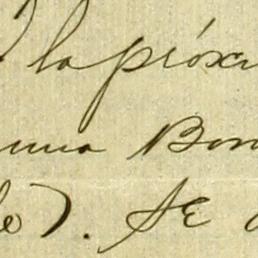 la próxi
nna Bon
le). SE